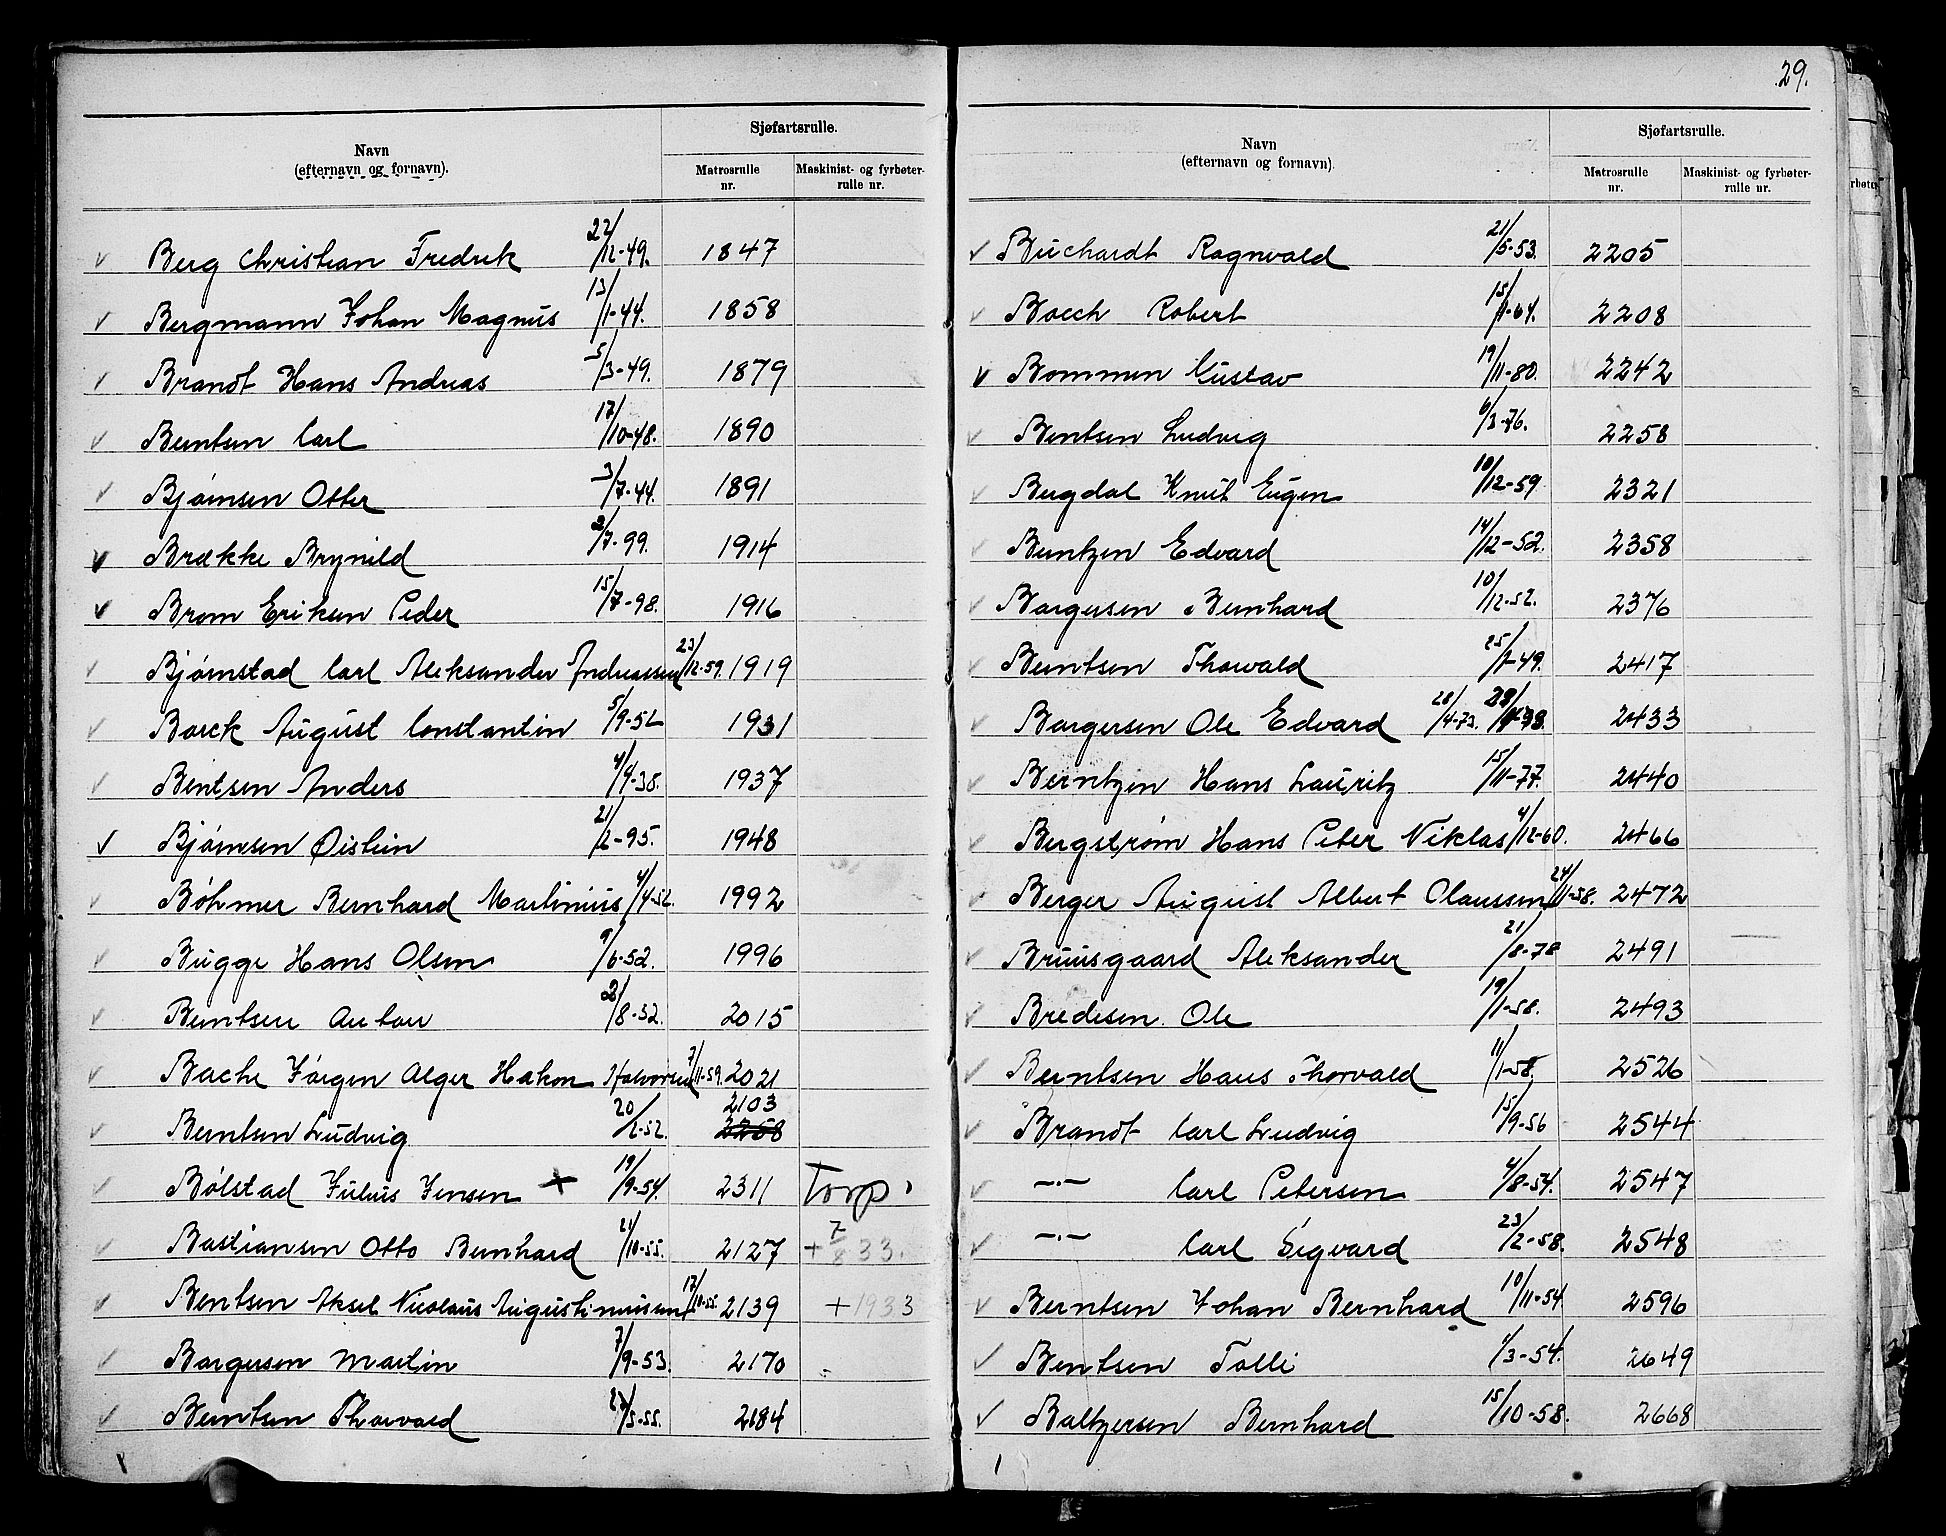 Sjøfartsrulle.
Navn
(efternavn og fornavn).
Matrosrulle nr.
Maskinist- og fyrbøter-rulle nr.
✓ Berg Christian Fredrik 22/12-49. 1847
✓ Bergmann Johan Magnus 13/1-44. 1858
✓ Brandt Hans Andreas 5/3-49. 1879
✓ Berntsen Carl 17/10-48. 1890
✓ Bjørnsen Otter 3/7-44. 1891
✓ Brække Brynild 2/7-99. 1914
✓ Brom Eriksen Peder 15/7-98. 1916
✓ Bjørnstad Carl Aleksander Andreassen 23/12-59. 1919
✓ Borck August Constantin 5/9-52 1931
✓ Bentsen Anders 4/4-38. 1937
✓ Bjørnsen Øistein 21/2-95. 1948
✓ Bøhmer Bernhard Martinius 4/4-52. 1992
✓ Bugge Hans Olsen 9/6-52. 1996
✓ Berntsen Anton 2/8-52. 2015
✓ Bache Jørgen Alger Hakon Halvorsen 7/11-59. 2021
2103
✓ Berntsen Ludvig 20/2-52. 2258
✓ Bølstad Julius Jensen + 19/9-54. 2311 Torp.
✓ Bastiansen Otto Bernhard 21/10-55. 2127 + 7/8 33.
✓ Bentsen Aksel Nicolaus Augustinussen 17/10-55. 2139 + 1933
✓ Borgersen Martin 7/9-53. 2170
✓ Berntsen Thorvald 27/5-55. 2184
29.
Sjøfartsrulle.
Navn
(efternavn og fornavn).
Matrosrulle nr.
Maskinist- og fyrbøter-rulle nr.
✓ Buchardt Ragnvald 21/5-53. 2205
✓ Bocch Robert 15/1-64. 2208
✓ Bommen Gustav 19/11-80. 2242
✓ Berntsen Ludvig 6/3-76. 2258
✓ Bergdal Knut Eugen 10/12-59 2321
✓ Berntzen Edvard 14/12-52. 2358
✓ Borgersen Bernhard 10/12-52. 2376
✓ Berntsen Thorvald 25/1-49. 2417
✓ Borgersen Ole Edvard 28/4-73. 2433
✓ Berntzen Hans Lauritz 15/11-77. 2440
✓ Bergstrøm Hans Peter Niklas 4/12-60. 2466
✓ Berger August Albert Olaussen 24/11-58. 2472
✓ Bruusgaard Aleksander 21/8-78 2491
✓ Bredesen Ole 19/1-58. 2493
✓ Berntsen Hans Thorvald 11/1-58. 2526
✓ Brandt Carl Ludvig 15/9-56 2544
✓ —·— Carl Petersen 4/8-54. 2547
✓ —·— Carl Sigvard 23/2-58. 2548
✓ Berntsen Johan Bernhard 10/11-54 2596
✓ Berntsen Tolli 1/3-54. 2649
✓ Baltzersen Bernhard 15/10-58. 2668